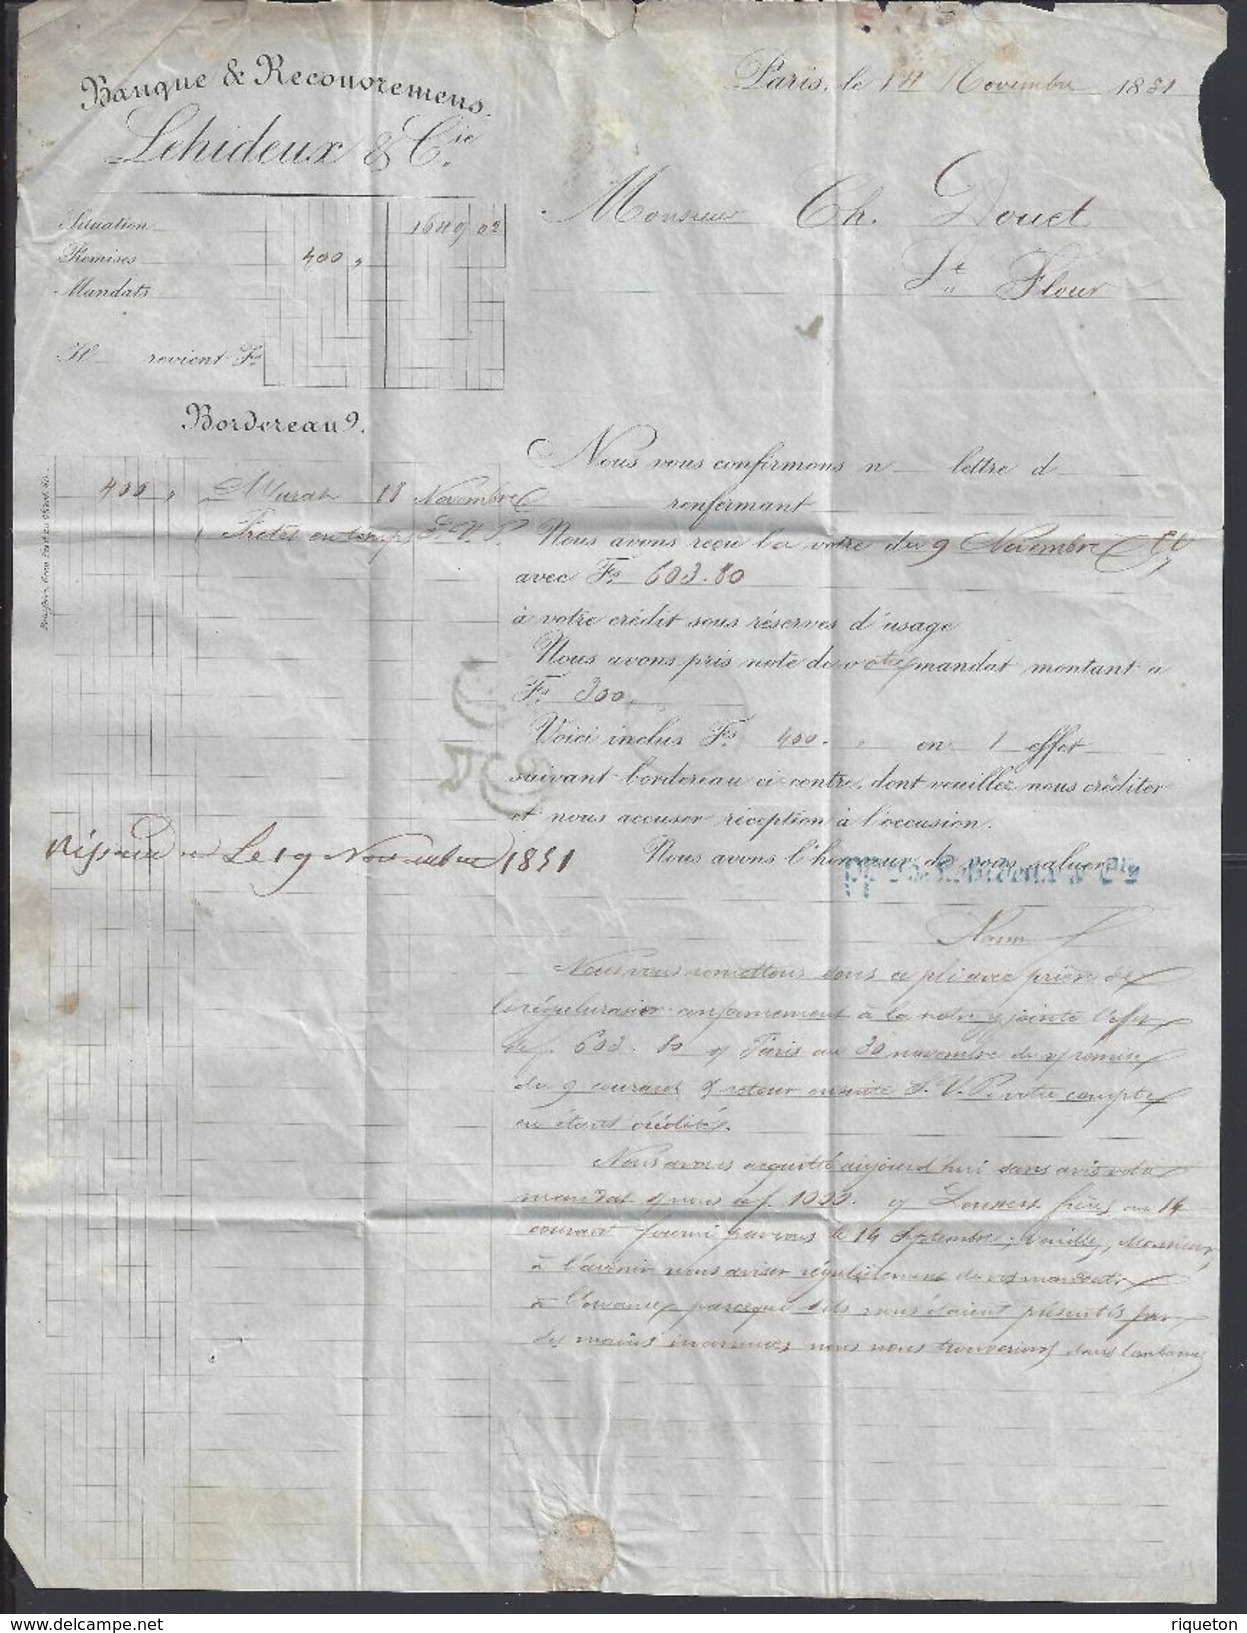 Banque & Recouvremens.
Lehideux & Cie.
Paris, le 14 Novembre 1851
Monsieur Ch. Douet
St. Flour
Situation 1649 02
Remises 400 "
Mandats
Il revient Fs.
Bordereau.
400 " Murat 18 Novembre
Protêt en temps S.V.P.
Nous vous confirmons n lettre d
renfermant
Nous avons reçu la votre du 9 Novembre
avec Fs. 603.80
à votre crédit sous réserves d'usage
Nous avons pris note de votre mandat montant a
Fs. 300.
Voici inclus Fs. 400. " en 1 effet
suivant bordereau ci-contre, dont veuillez nous créditer
et nous accuser réception à l'occasion.
Nous avons l'honneur de vous saluer
Lehideux & Cie
Répondu Le 19 Novembre 1851
Nous vous remettons dans ce pli avec prière de
le régulariser conformément à la note y jointe l'effet
de f. 603.80 Paris au 30 novembre de remise
du 9 courant & retour ensuite S.V.P. votre compte
en étant crédité.
Nous avons acquitté aujourd'hui sans avis votre
mandat nous de f. 1000. frères au 14
courant fourni par vous le 14 Septembre; Veuillez, Monsieur,
à l'avenir nous aviser régulièrement de vos mandats
à l'avance, parceque s'ils nous étaient présentés par
des mains inconnues nous nous trouverions dans l'embarras
riqueton